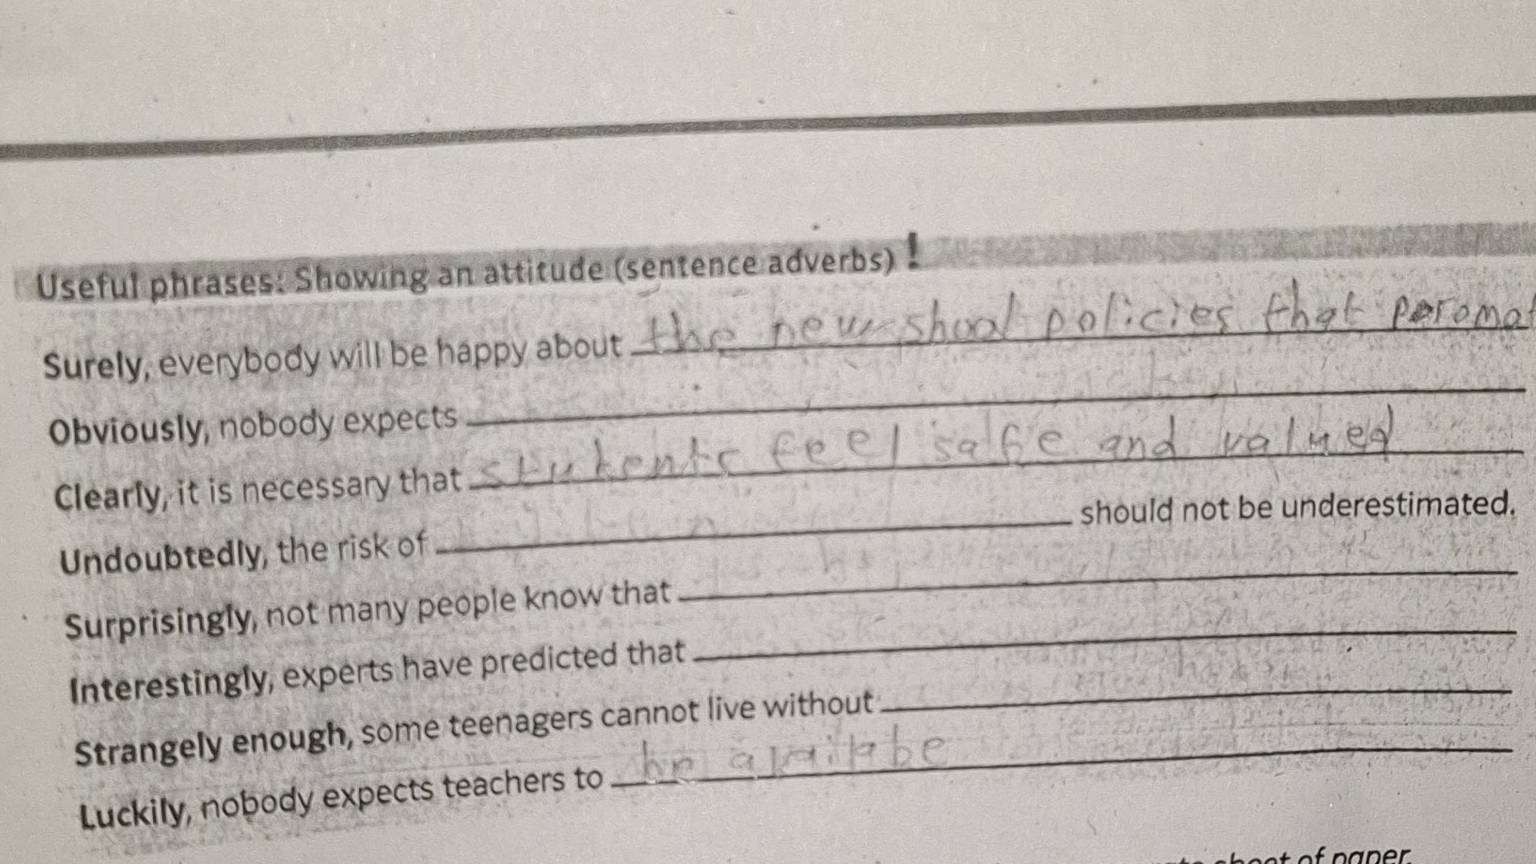 Useful phrases: Showing an attitude (sentence adverbs) !
Surely, everybody will be happy about the new shool policies that peromot
Obviously, nobody expects
Clearly, it is necessary that stukents feel safe and valued
Undoubtedly, the risk of should not be underestimated.
Surprisingly, not many people know that
Interestingly, experts have predicted that
Strangely enough, some teenagers cannot live without
Luckily, nobody expects teachers to be
sheet of paper.